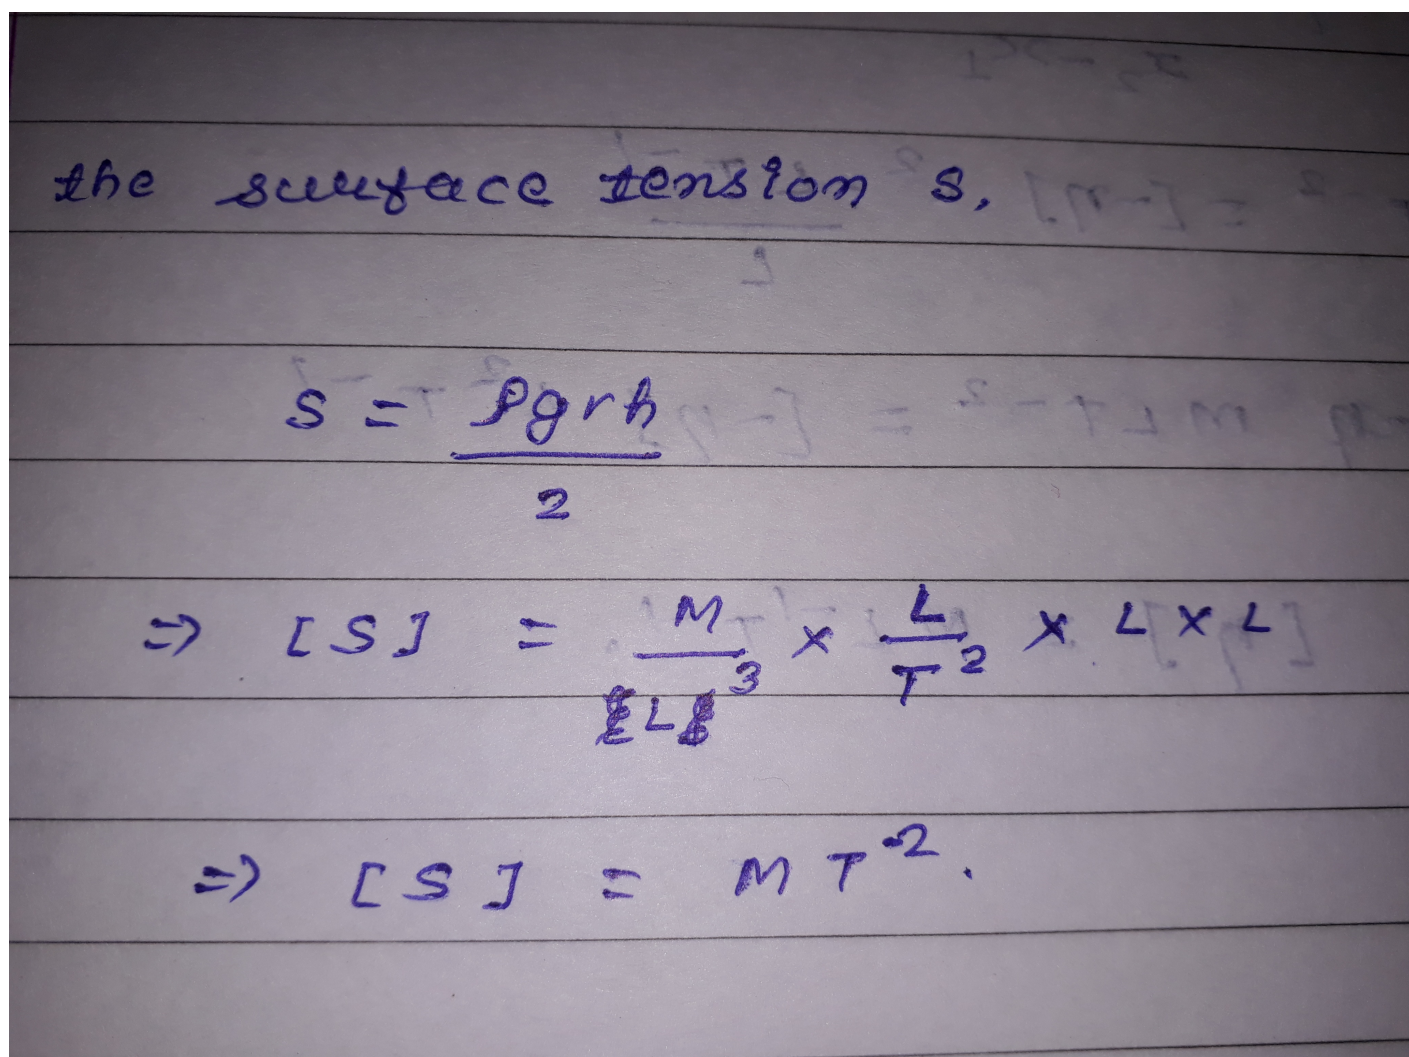 the surface tension s,
S = ρgrh
2
⇒ [S] = M/L³ × L/T² × L × L
⇒ [S] = MT⁻².